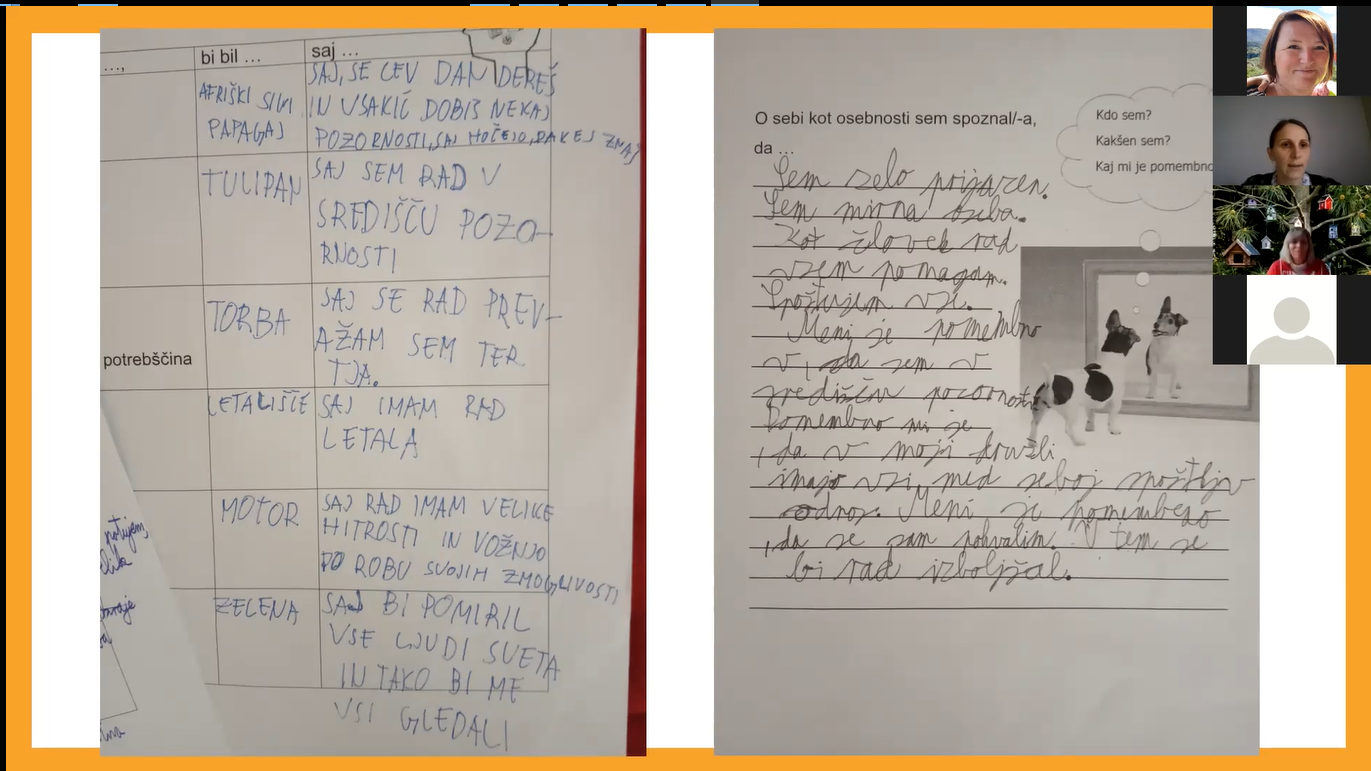 ...,
bi bil ...
saj ...
AFRIŠKI SIVI
PAPAGAJ
SAJ, SE CEV DAN DEREŠ
IN VSAKIČ DOBIŠ NEKAJ
POZORNOSTI, SAJ HOČEJO, DA KEJ ZMAJ
TULIPAN
SAJ SEM RAD V
SREDIŠČU POZO-
RNOSTI
potrebščina
TORBA
SAJ SE RAD PREV-
AŽAM SEM TER
TJA.
LETALIŠČE
SAJ IMAM RAD
LETALA
MOTOR
SAJ RAD IMAM VELIKE
HITROSTI IN VOŽNJO
DO ROBU SVOJIH ZMOGLIVOSTI
ZELENA
SAJ BI POMIRIL
VSE LJUDI SVETA
IN TAKO BI ME
VSI GLEDALI
O sebi kot osebnosti sem spoznal/-a,
da ...
Kdo sem?
Kakšen sem?
Kaj mi je pomembno
Sem zelo prijazen.
Sem mirna oseba.
Kot človek rad
vsem pomagam.
Spoštujem vse.
Meni je pomembno
v, da sem v
središču pozornosti
Pomembno mi je
, da v moji družbi
imajo vsi, med seboj spoštljiv
odnos. Meni je pomembno
, da se sam pohvalim. V tem se
bi rad izboljšal.